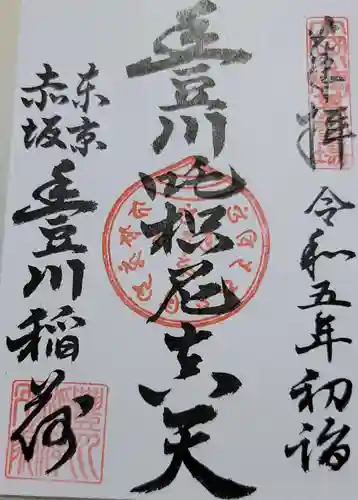 奉拝
令和五年初詣
豊川吒枳尼真天
東京
赤坂
豊川稲荷